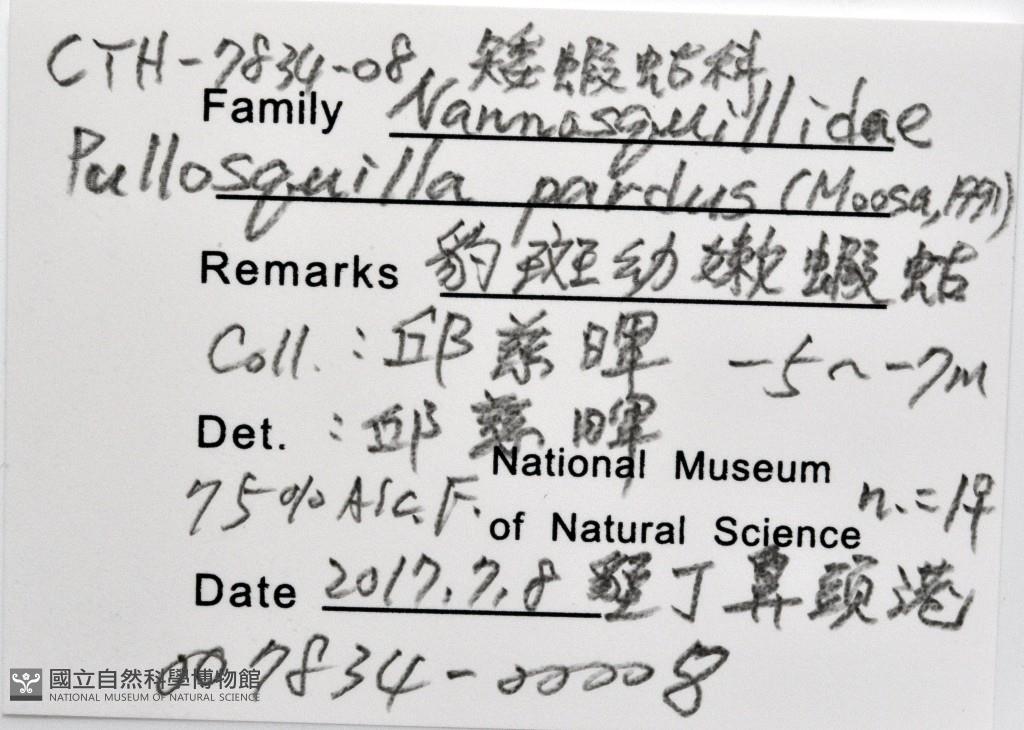 CTH-7834-08 矮蝦蛄科
Family Nannosquillidae
Pullosquilla pardus (Moosa, 1991)
Remarks 豹斑幼嫩蝦蛄
Coll. : 邱慈暉 -5~-7m
Det. : 邱慈暉
National Museum
75% Alc. F. of Natural Science n.=1♀
Date 2017.7.8 墾丁鼻頭港
007834-00008
國立自然科學博物館
NATIONAL MUSEUM OF NATURAL SCIENCE